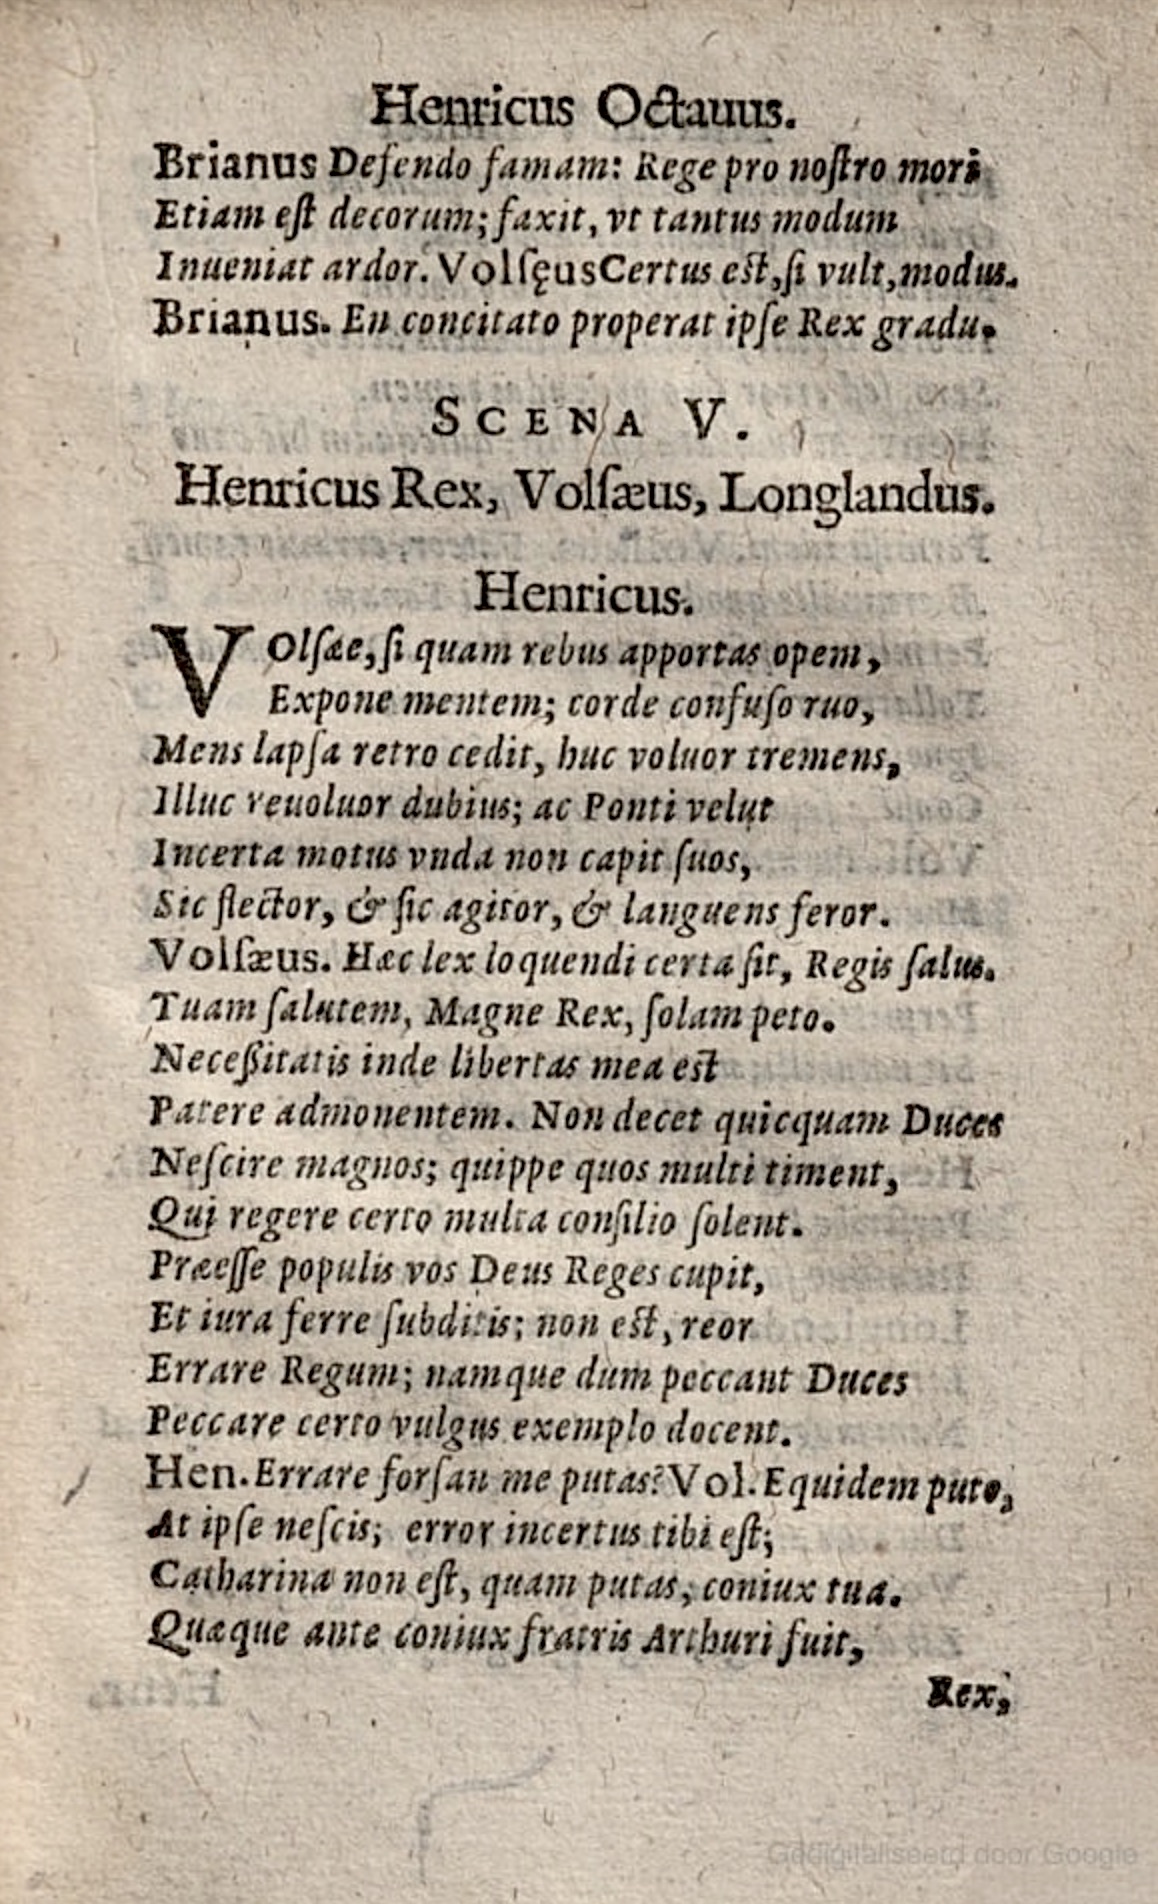 Henricus Octauus.
Brianus Defendo famam: Rege pro noſtro mori
Etiam eſt decorum; faxit, vt tantus modum
Inueniat ardor. Volſęus Certus eſt, ſi vult, modus.
Brianus. En concitato properat ipſe Rex gradu.
SCENA V.
Henricus Rex, Volſæus, Longlandus.
Henricus.
VOlſæe, ſi quam rebus apportas opem,
Expone mentem; corde confuſo ruo,
Mens lapſa retro cedit, huc voluor tremens,
Illuc reuoluor dubius; ac Ponti velut
Incerta motus vnda non capit ſuos,
Sic flector, & ſic agitor, & languens feror.
Volſæus. Hæc lex loquendi certa ſit, Regis ſalus.
Tuam ſalutem, Magne Rex, ſolam peto.
Neceßitatis inde libertas mea eſt
Patere admonentem. Non decet quicquam Duces
Neſcire magnos; quippe quos multi timent,
Qui regere certo multa conſilio ſolent.
Præeſſe populis vos Deus Reges cupit,
Et iura ferre ſubditis; non eſt, reor
Errare Regum; namque dum peccant Duces
Peccare certo vulgus exemplo docent.
Hen. Errare forſan me putas? Vol. Equidem puto,
At ipſe neſcis; error incertus tibi eſt;
Catharina non eſt, quam putas, coniux tua.
Quæque ante coniux fratris Arthuri fuit,
Rex,
Gedigitaliseerd door Google